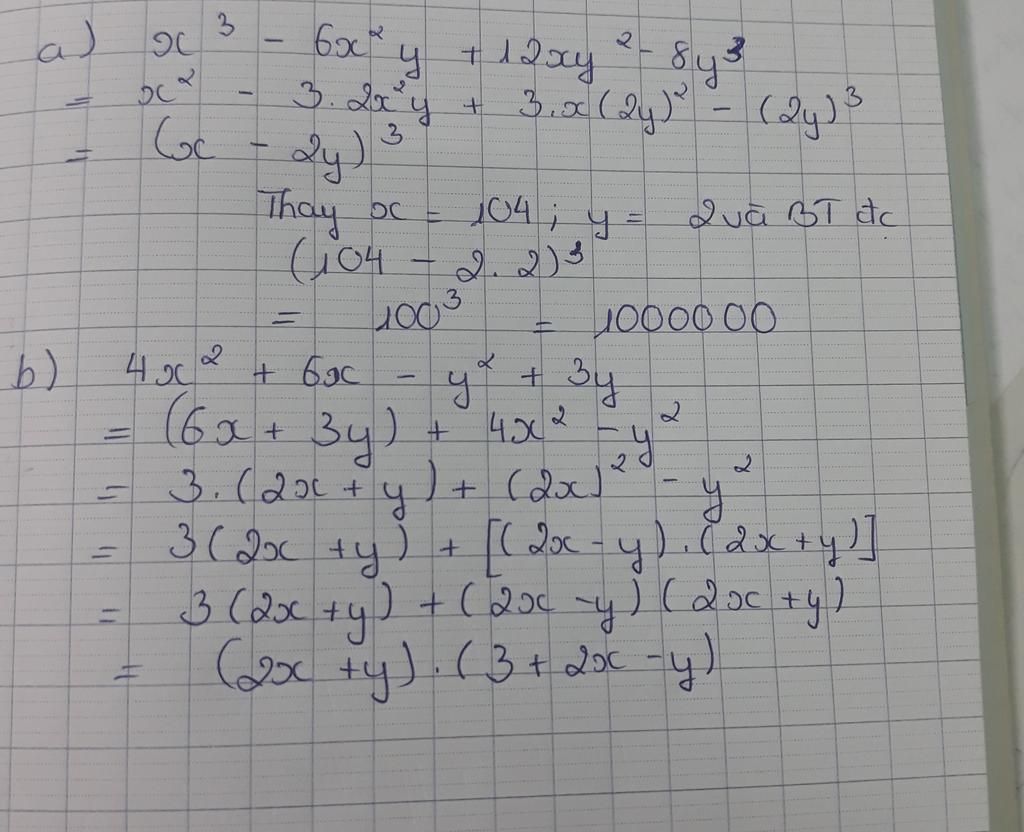 a) x³ - 6x²y + 12xy² - 8y³
= x² - 3.2x²y + 3.x(2y)² - (2y)³
= (x - 2y)³
Thay x = 104; y = 2 và BT đc
(104 - 2.2)³
= 100³ = 1000000
b) 4x² + 6x - y² + 3y
= (6x + 3y) + 4x² - y²
= 3.(2x + y) + (2x)² - y²
= 3(2x + y) + [(2x - y).(2x + y)]
= 3(2x + y) + (2x - y)(2x + y)
= (2x + y).(3 + 2x - y)